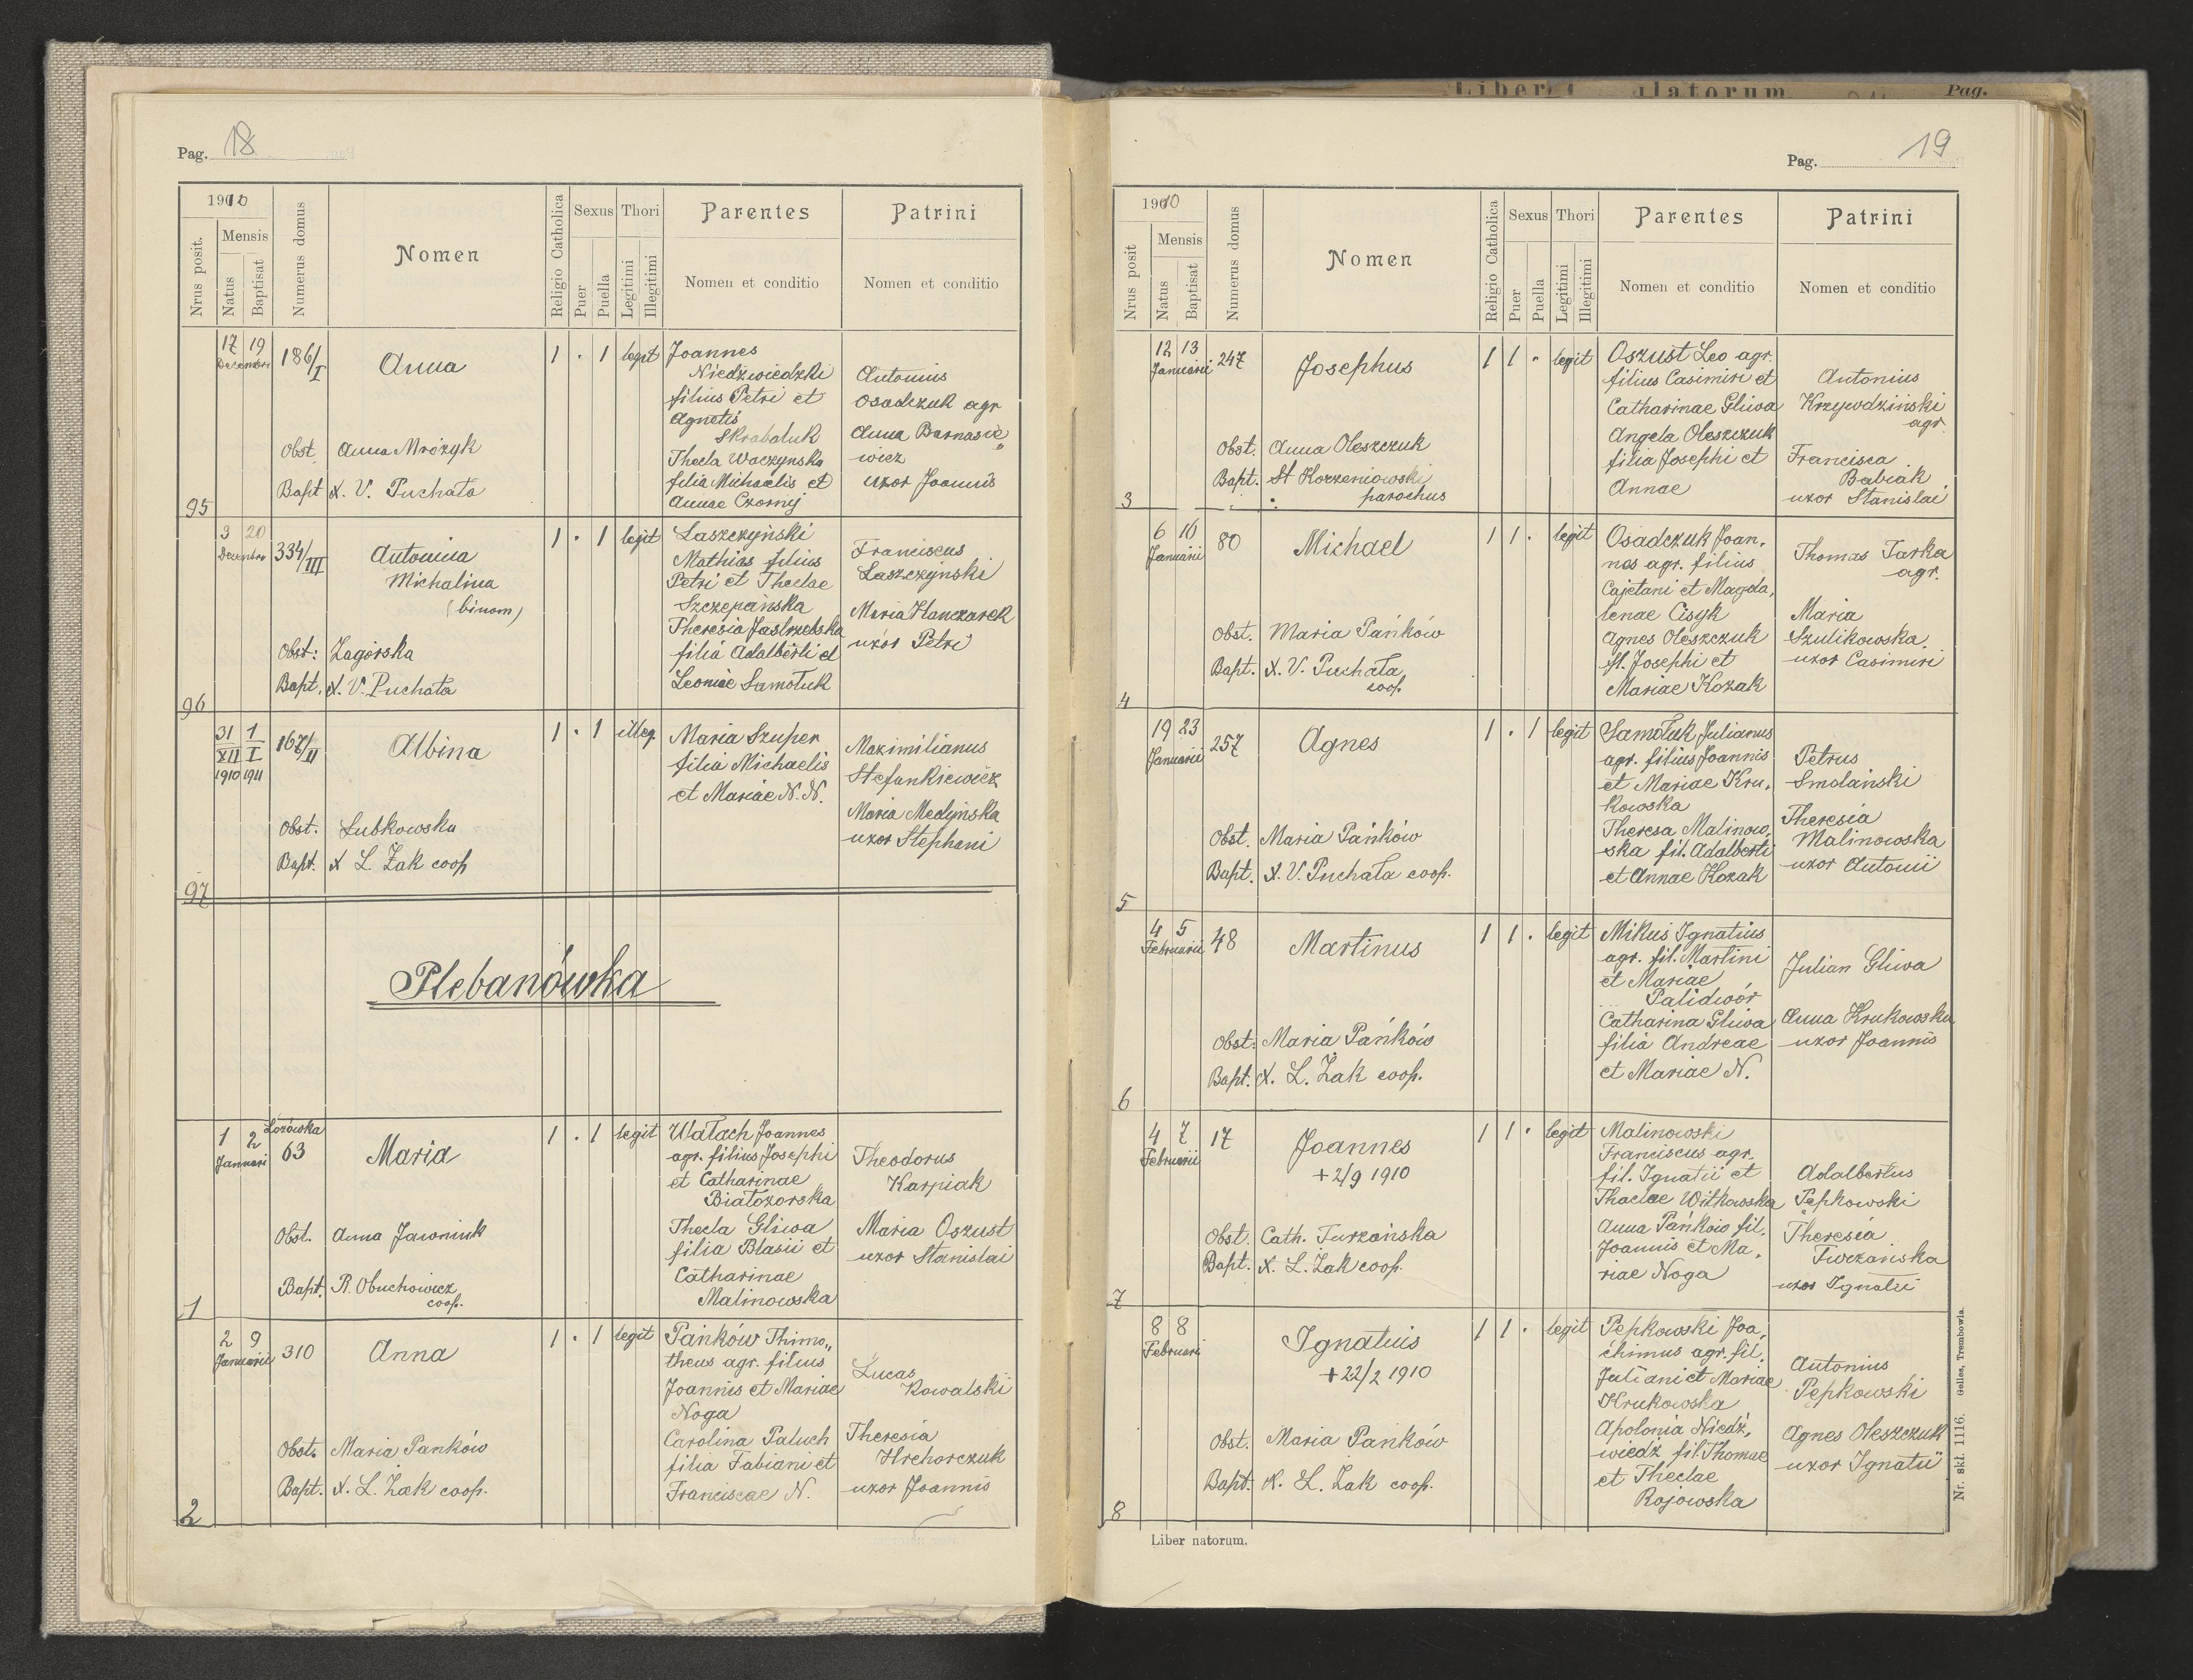 Pag. 18
1910
Nrus posit.
Mensis
Natus
Baptisat
Numerus domus
Nomen
Religio Catholica
Sexus
Puer
Puella
Thori
Legitimi
Illegitimi
Parentes
Nomen et conditio
Patrini
Nomen et conditio
95
17 19
Decembri
186/I
Anna
1 . 1 legit
Joannes
Niedźwiedzki
filius Petri et
Agnetis
Skrabaluk
Thecla Waczynska
filia Michaelis et
Annae Czornij
Antonius
Osadczuk agr
Anna Barnasie„
wicz
uxor Joannis
Obst. Anna Mrożyk
Bapt X. V. Puchała
96
3 20
Decembri
334/III
Antonina
Michalina
(binom)
1 . 1 legit
Łaszczyński
Mathias filius
Petri et Theclae
Szczepańska
Theresia Jastrzebska
filia Adalberti et
Leoniae Samołuk
Franciscus
Łaszczyński
Maria Hanczarek
uxor Petri
Obst: Zagórska
Bapt. X. V. Puchała
97
31 1
XII I
1910 1911
167/II
Albina
1 . 1 illeg.
Maria Szuper
filia Michaelis
et Mariae N. N.
Maximilianus
Stefankiewicz
Maria Medyńska
uxor Stephani
Obst. Łubkowska
Bapt. X Ł. Żak coop
Plebanówka
1
1 2
Januari
Łozówka
63
Maria
1 . 1 legit
Wałach Joannes
agr. filius Josephi
et Catharinae
Białozorska
Thecla Gliwa
filia Blasii et
Catharinae
Malinowska
Theodorus
Karpiak
Maria Oszust
uxor Stanislai
Obst. Anna Jawoniuk
Bapt. R. Obuchowicz
coop.
2
2 9
Januarii
310
Anna
1 . 1 legit
Pańków Thimo„
theus agr. filius
Joannis et Mariae
Noga
Carolina Paluch
filia Fabiani et
Franciscae N.
Lucas
Kowalski
Theresia
Hrehorczuk
uxor Joannis
Obst. Maria Panków
Bapt. X. Ł. Żak coop.
Pag.
Pag. 19
1910
Nrus posit
Mensis
Natus
Baptisat
Numerus domus
Nomen
Religio Catholica
Sexus
Puer
Puella
Thori
Legitimi
Illegitimi
Parentes
Nomen et conditio
Patrini
Nomen et conditio
3
12 13
Januarii
247
Josephus
1 1 . legit
Oszust Leo agr.
filius Casimiri et
Catharinae Gliwa
Angela Oleszczuk
filia Josephi et
Annae
Antonius
Krzywdziński
agr.
Francisca
Babiak
uxor Stanislai
Obst. Anna Oleszczuk
Bapt. St Korzeniowski
parochus
4
6 16
Januarii
80
Michael
1 1 . legit
Osadczuk Joan,
nes agr. filius
Cajetani et Magda,
lenae Cisyk
Agnes Oleszczuk
fl. Josephi et
Mariae Kozak
Thomas Tarka
agr.
Maria
Szulikowska
uxor Casimiri
Obst. Maria Pańków
Bapt. X. V. Puchała
coop.
5
19 23
Januarii
257
Agnes
1 . 1 legit
Samołuk Julianus
agr. filius Joannis
et Mariae Kru,
kowska
Theresa Malinow,
ska fil. Adalberti
et Annae Kozak
Petrus
Smolański
Theresia
Malinowska
uxor Antonii
Obst. Maria Pańków
Bapt. X. V. Puchała coop.
6
4 5
Februarii
48
Martinus
1 1 . legit
Mikuś Ignatius
agr. fil. Martini
et Mariae
Palidwór
Catharina Gliwa
filia Andreae
et Mariae N.
Julian Gliwa
Anna Krukowska
uxor Joannis
Obst: Maria Pańków
Bapt. X. Ł. Żak coop.
7
4 7
Februarii
17
Joannes
+ 2/9 1910
1 1 . legit
Malinowski
Franciscus agr.
fil. Ignatii et
Theclae Witkowska
Anna Pańków fil,
Joannis et Ma,
riae Noga
Adalbertus
Pepkowski
Theresia
Turzańska
uxor Ignatii
Obst. Cath. Turzańska
Bapt. X. Ł. Żak coop.
8
8 8
Februari
Ignatius
+ 22/2 1910
1 1 . legit
Pepkowski Joa,
chimus agr. fil,
Juliani et Mariae
Krukowska
Apolonia Niedź,
wiedź fil. Thomae
et Theclae
Rojowska
Antonius
Pepkowski
Agnes Oleszczuk
uxor Ignatii
Obst. Maria Panków
Bapt. X. Ł. Żak coop.
Liber natorum.
Nr. skł. 1116. Gelles, Trembowla.